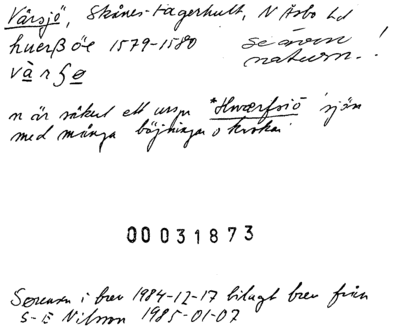 Vårsjö, Skånes-Fagerhult, N Åsbo hd
huerß öe 1579-1580
se även
naturn. !
vàrʃø
n är säkert ett urspr *Hwærfsiö 'sjön
med många böjningar o krokar'
00031873
Sörensen i brev 1984-12-17 bilagt brev från
S-E Nilsson 1985-01-02